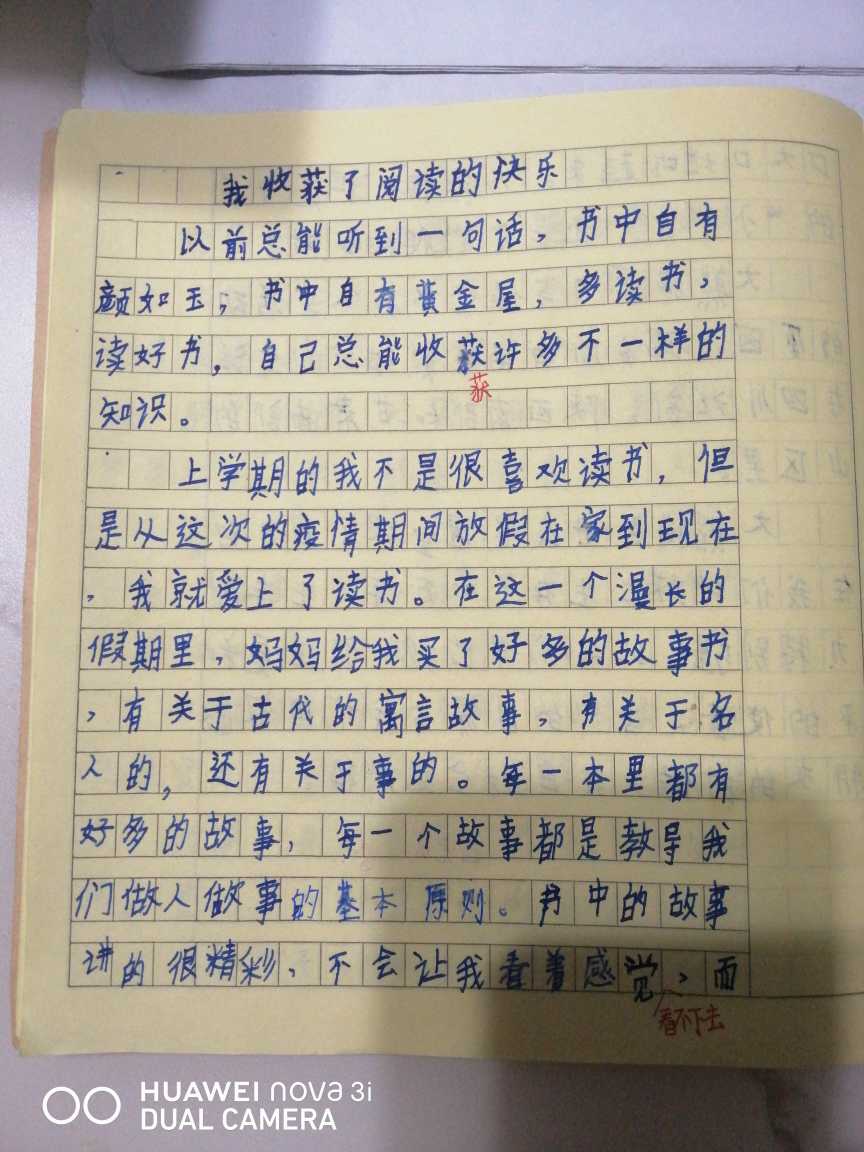 我收获了阅读的快乐
以前总能听到一句话，书中自有
颜如玉，书中自有黄金屋，多读书，
读好书，自己总能收获许多不一样的
获
知识。
上学期的我不是很喜欢读书，但
是从这次的疫情期间放假在家到现在
，我就爱上了读书。在这一个漫长的
假期里，妈妈给我买了好多的故事书
，有关于古代的寓言故事，有关于名
人的，还有关于事的。每一本里都有
好多的故事，每一个故事都是教导我
们做人做事的基本原则。书中的故事
讲的很精彩、不会让我看着感觉，而
看不下去
HUAWEI nova 3i
DUAL CAMERA